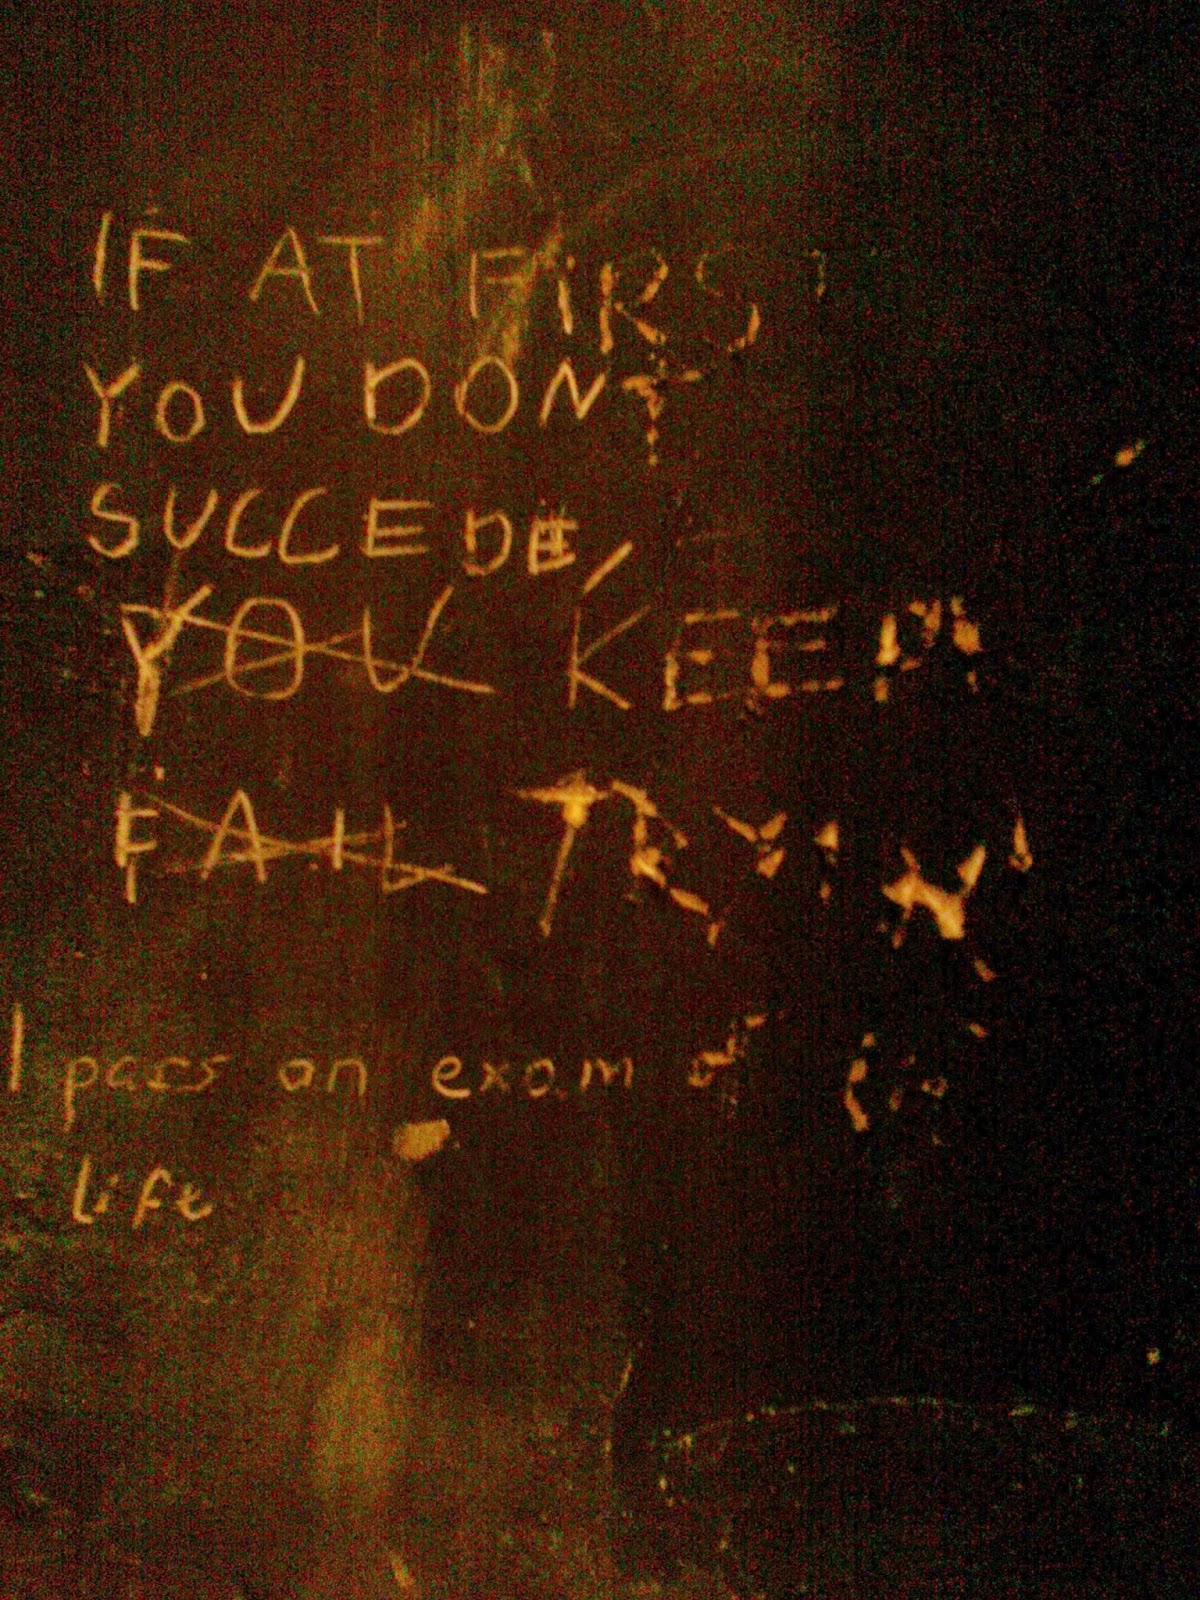 IF AT FIRST
YOU DONT
SUCCEDE,
YOU KEEP
FAIL TRYIN
I pass an exam of
life